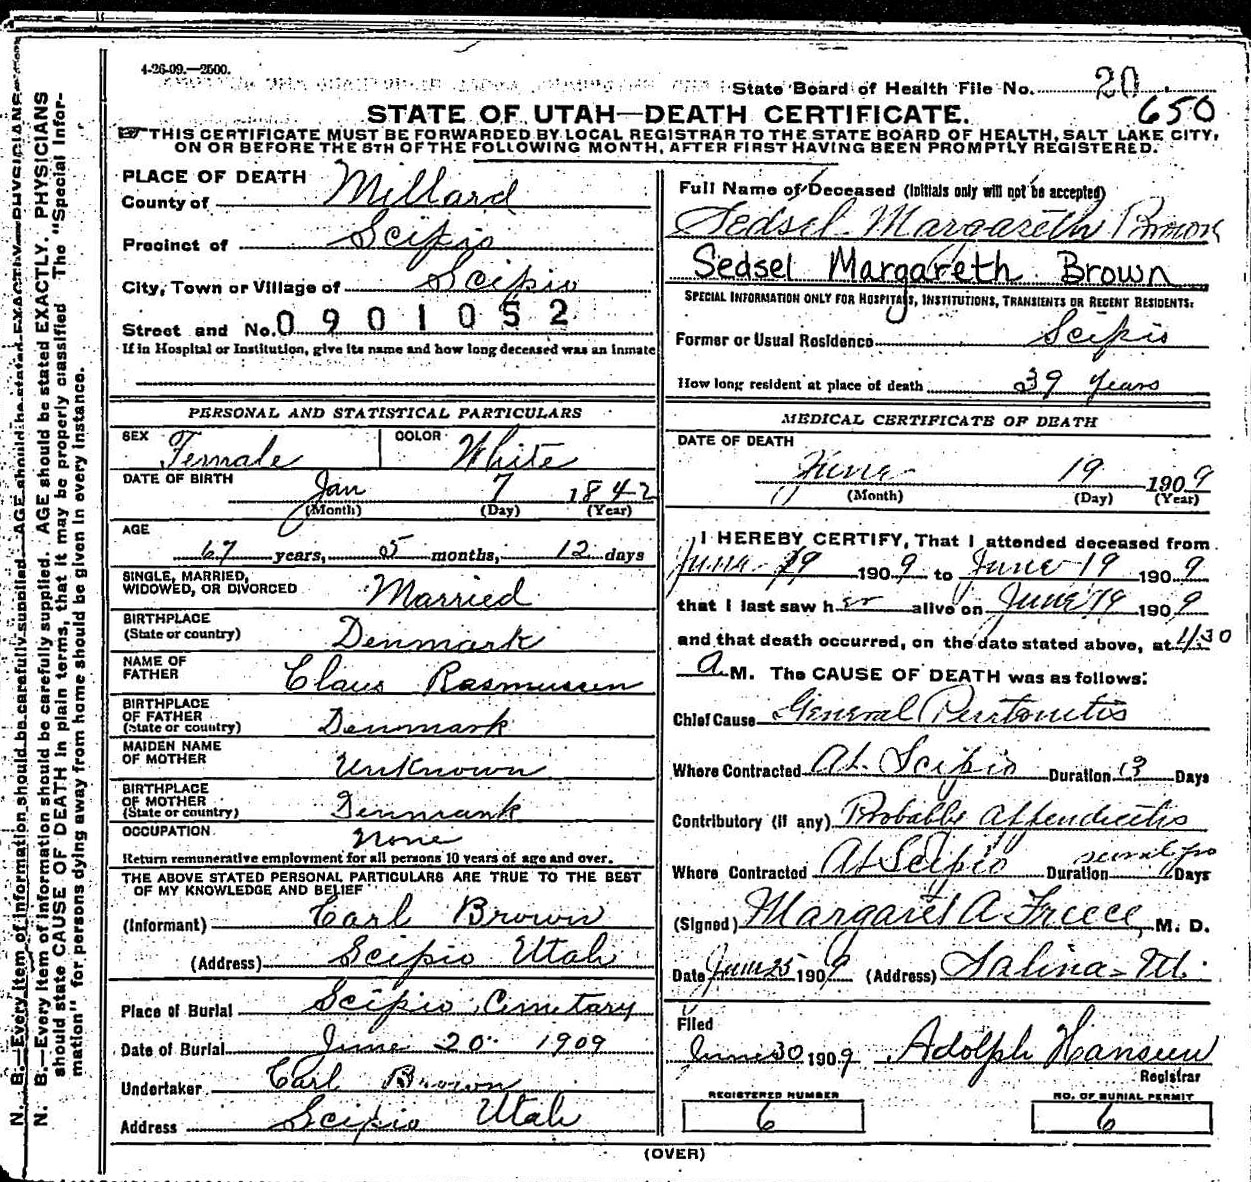 4-26-09.—2500.
State Board of Health File No. 20
650
STATE OF UTAH—DEATH CERTIFICATE.
THIS CERTIFICATE MUST BE FORWARDED BY LOCAL REGISTRAR TO THE STATE BOARD OF HEALTH, SALT LAKE CITY,
ON OR BEFORE THE 5TH OF THE FOLLOWING MONTH, AFTER FIRST HAVING BEEN PROMPTLY REGISTERED.
PLACE OF DEATH
County of Millard
Precinct of Scipio
City, Town or Village of Scipio
Street and No. 0901052
If in Hospital or Institution, give its name and how long deceased was an inmate
PERSONAL AND STATISTICAL PARTICULARS
SEX Female COLOR White
DATE OF BIRTH
Jan 7 1842
(Month) (Day) (Year)
AGE
67 years, 5 months, 12 days
SINGLE, MARRIED,
WIDOWED, OR DIVORCED Married
BIRTHPLACE
(State or country) Denmark
NAME OF
FATHER Claus Rasmussen
BIRTHPLACE
OF FATHER
(State or country) Denmark
MAIDEN NAME
OF MOTHER Unknown
BIRTHPLACE
OF MOTHER
(State or country) Denmark
OCCUPATION None
Return remunerative employment for all persons 10 years of age and over.
THE ABOVE STATED PERSONAL PARTICULARS ARE TRUE TO THE BEST
OF MY KNOWLEDGE AND BELIEF
(Informant) Carl Brown
(Address) Scipio Utah
Place of Burial Scipio Cemetary
Date of Burial June 20 1909
Undertaker Carl Brown
Address Scipio Utah
Full Name of Deceased (Initials only will not be accepted)
Sedsel Margareth Brown
Sedsel Margareth Brown
SPECIAL INFORMATION ONLY FOR HOSPITALS, INSTITUTIONS, TRANSIENTS OR RECENT RESIDENTS:
Former or Usual Residence Scipio
How long resident at place of death 39 years
MEDICAL CERTIFICATE OF DEATH
DATE OF DEATH
June 19 1909
(Month) (Day) (Year)
I HEREBY CERTIFY, That I attended deceased from
June 19 1909 to June 19 1909
that I last saw her alive on June 19 1909
and that death occurred, on the date stated above, at 4:30
A.M. The CAUSE OF DEATH was as follows:
Chief Cause General Peritonitis
Where Contracted At Scipio Duration 13 Days
Contributory (if any) Probably appendicitis
Where Contracted At Scipio Duration Days
(Signed) Margaret A Freece, M. D.
Date June 25 1909 (Address) Salina - Ut.
Filed
June 30 1909 Adolph Hansen
Registrar
REGISTERED NUMBER
6
NO. OF BURIAL PERMIT
6
(OVER)
N. B.—Every item of information should be carefully supplied. AGE should be stated EXACTLY. PHYSICIANS
N. B.—Every item of information should be carefully supplied. AGE should be stated EXACTLY. PHYSICIANS
should state CAUSE OF DEATH in plain terms, that it may be properly classified. The "Special Infor-
mation" for persons dying away from home should be given in every instance.